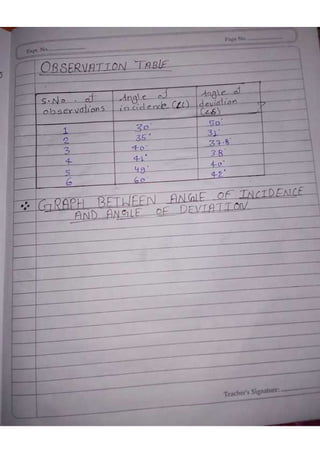 Page No.
Expt. No.
OBSERVATION TABLE
S.No. of observations | Angle of incidence (∠i) | Angle of deviation (∠δ)
1 30° 50°
2 35° 31°
3 40° 37.8°
4 41° 38°
5 49° 40°
6 60 42°
❖ GRAPH BETWEEN ANGLE OF INCIDENCE
AND ANGLE OF DEVIATION
Teacher's Signature: